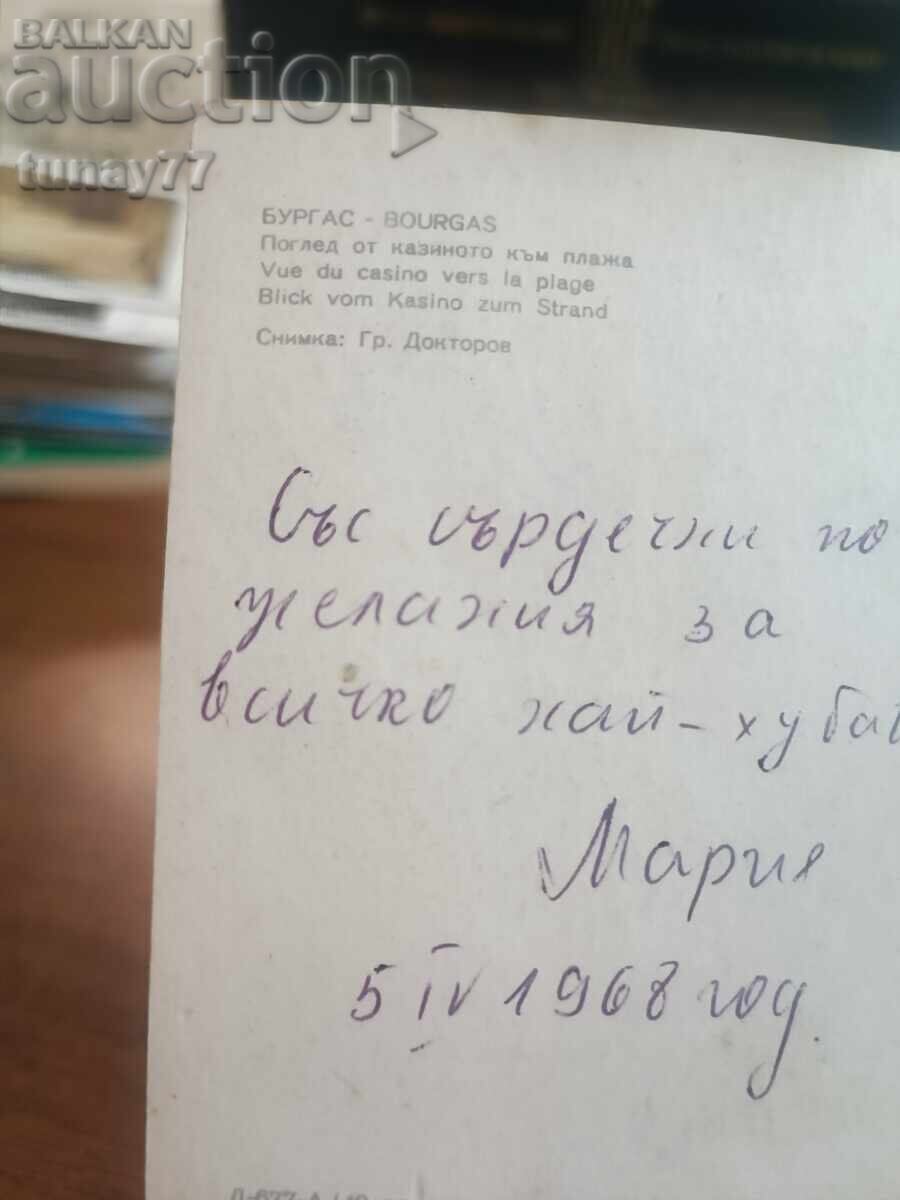 BALKAN
auction
tunay77
БУРГАС - BOURGAS
Поглед от казиното към плажа
Vue du casino vers la plage
Blick vom Kasino zum Strand
Снимка: Гр. Докторов
Със сърдечни по
желания за
всичко най-хубав
Мария
5 IV 1968 год.